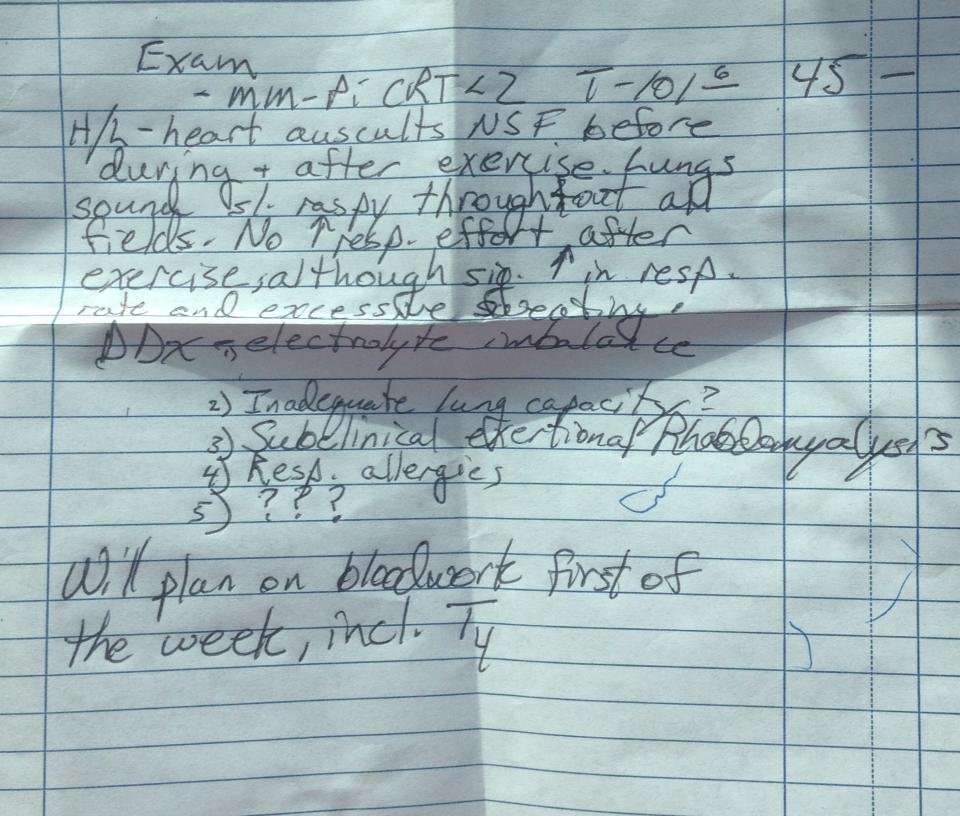 Exam
- mm-Pi CRT<2 T-101⁶ 45 —
H/L-heart auscults NSF before
during + after exercise. Lungs
sound sl. raspy throughout all
fields. No ↑ resp. effort after
exercise, although sig. ↑ in resp.
rate and excessive sweating.
DDx - electrolyte imbalance
2) Inadequate lung capacity?
3) Subclinical exertional Rhabdomyalysis
4) Resp. allergies
5) ? ? ?
Will plan on bloodwork first of
the week, incl. T4